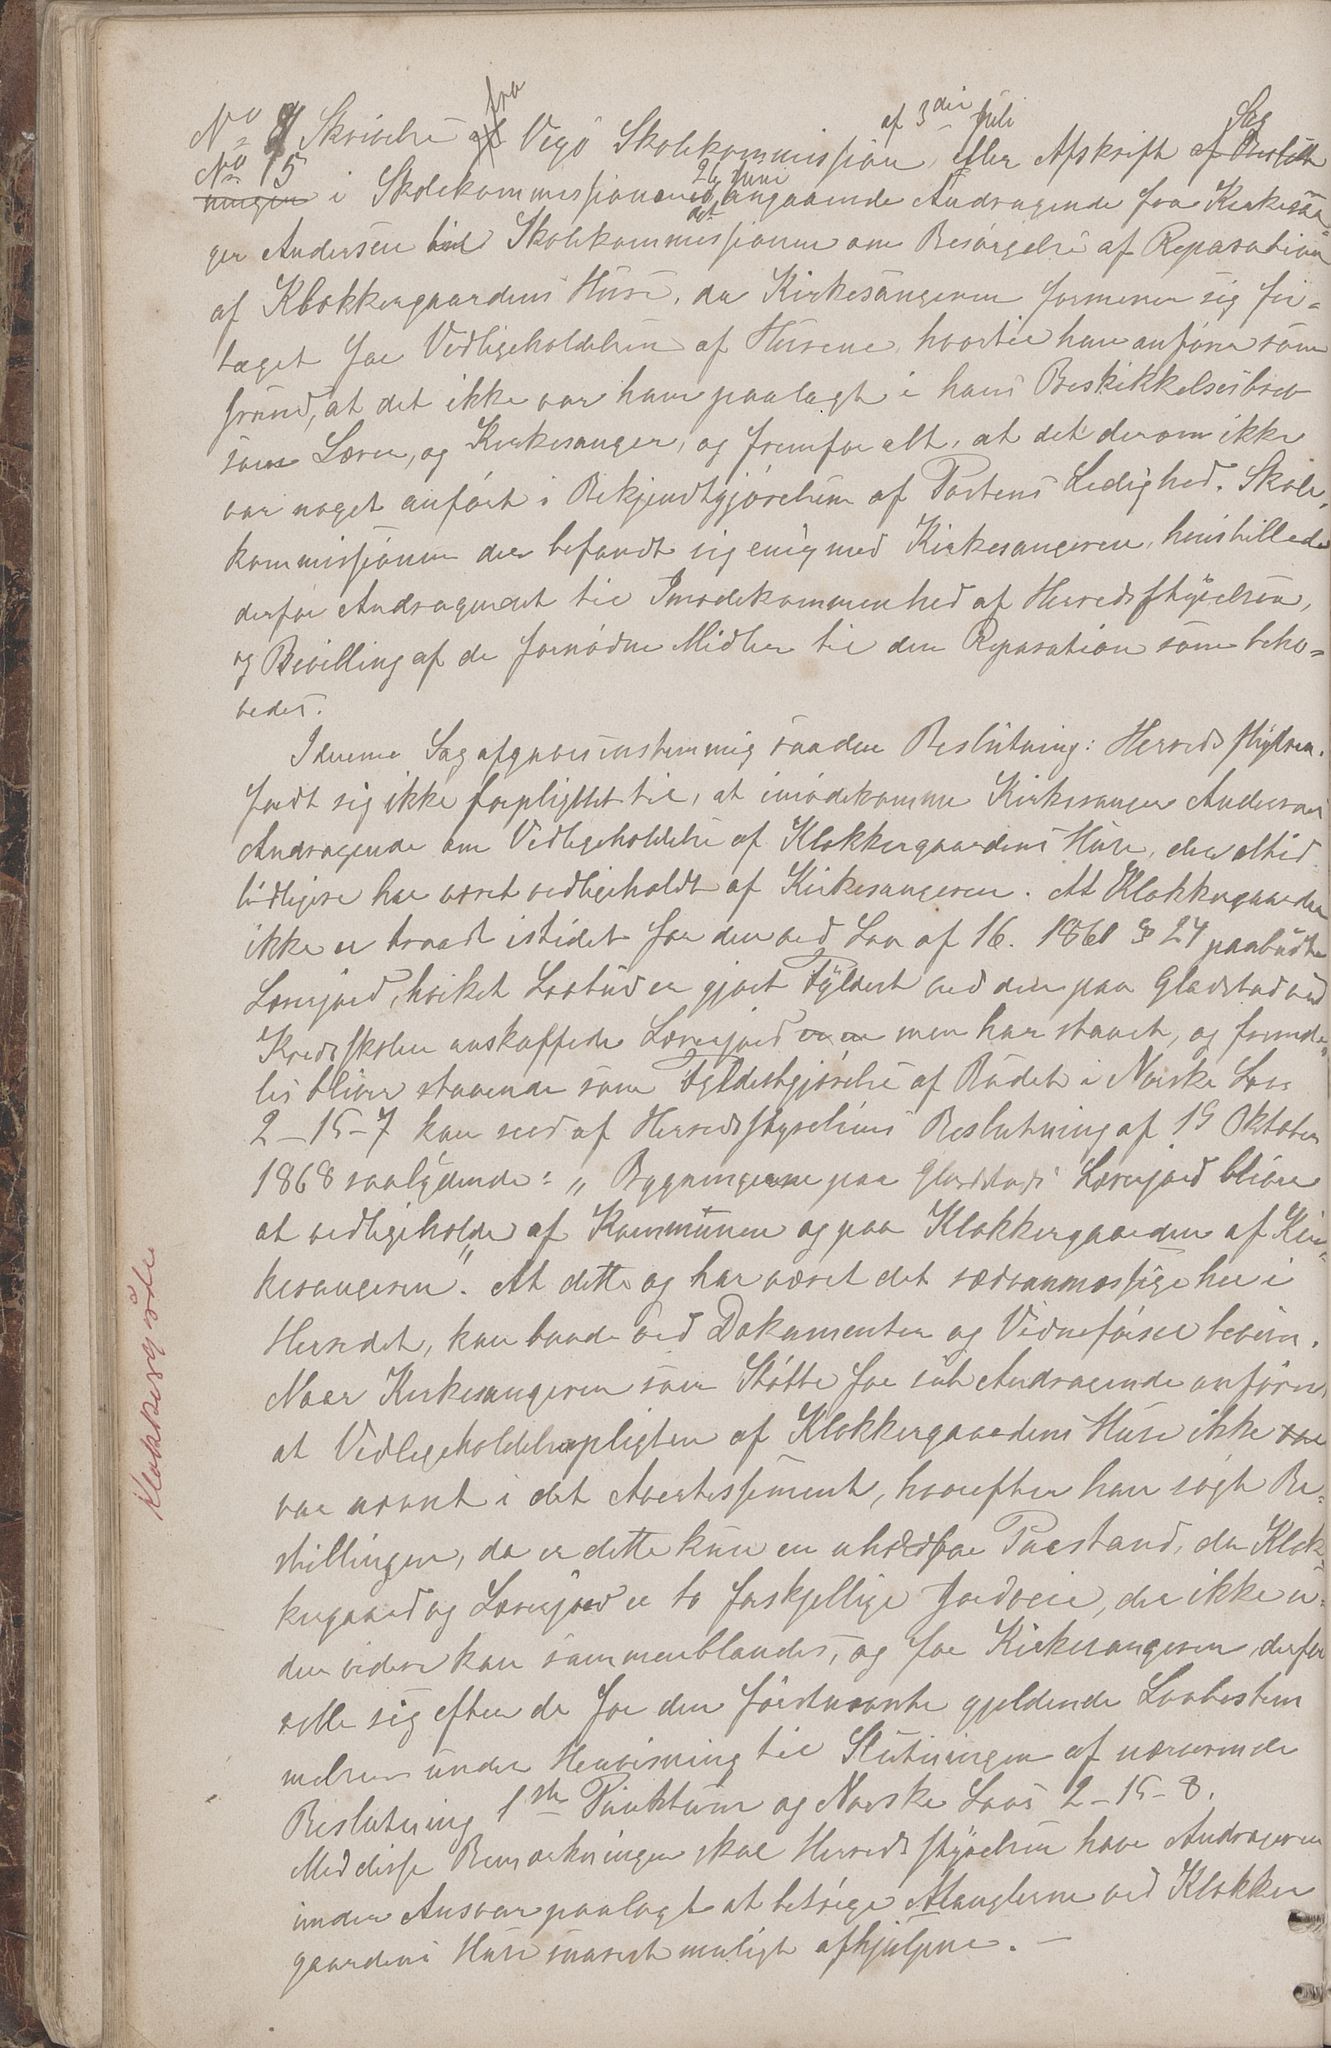 No 8 Skrivelse fra Vegø Skolekommission, af 3die Juli efter Afskrift Sag
No 15 i Skolekommissionen 26 Juni angaaende Andragende fra Kirkesan-
ger Andersen til Skolekommissionen om Besørgelse af Reparation
af Klokkergaardens Huse, da Kirkesangeren formener sig fri-
taget for Vedligeholdelsen af Husene, hvortil han anfører som
Grund, at det ikke var ham paalagt i hans Beskikkelsesbrev
som Lærer, og Kirkesanger, og fremfor alt, at det derom ikke
var noget anført i Bekjendtgjørelsen af Postens Ledighed. Skole-
kommissionen der befandt sig enig med Kirkesangeren, henstillede
derfor Andragendet til Imødekommenhed af Herredsstyrelsen,
og Bevilling af de fornødne Midler til den Reparation som beho-
vedes.
I denne Sag afgaves enstemmig saadan Beslutning: Herredsstyrelsen
fandt sig ikke forpligtet til, at imødekomme Kirkesanger Andersens
Andragende om Vedligeholdelse af Klokkergaardens Huse, der altid
tidligere har været vedligeholdt af Kirkesangeren. At Klokkergaarden
ikke er traadt istedet for den ved Lov af 16. 1860 § 24 paabudte
Lærerjord, hvilket Lovbud er gjort Fyldest ved den paa Gladstad ved
Kredsskolen anskaffede Lærerjord men har staaet, og fremde-
les bliver staaende som Fyldestgjørelse af Budet i Norske Lov
2–15–7 kan sees af Herredsstyrelsens Beslutning af 19 Oktober
1868 saalydende: „Bygningerne paa Gladstads Lærerjord bliver
at vedligeholde af Kommunen og paa Klokkergaarden af Kir-
kesangeren”. At dette og har været det sædvanmæssige her i
Herredet, kan baade ved Dokumenter og Vidneførsel bevises.
Naar Kirkesangeren som Støtte for sit Andragende anfører
at Vedligeholdelsespligten af Klokkergaardens Huse ikke var
var nævnt i det Avertissement, hvorefter han søgte Be-
stillingen, da er dette kun en uholdbar Paastand, da Klok-
kergaard og Lærerjord er to forskjellige Jordveie, der ikke u-
den videre kan sammenblandes, og for Kirkesangeren derfor
rette sig efter de for den førstnævnte gjeldende Lovbestem
melser under Henvisning til Slutningen af nærværende
Beslutning 1ste Punktum og Norske Lovs 2–15–8.
Med disse Bemærkninger skal Herredsstyrelsen have Andrageren
under Ansvar paalagt at besørge Manglerne ved Klokker
gaardens Huse snarest muligt afhjulpne. –
Klokkergårde